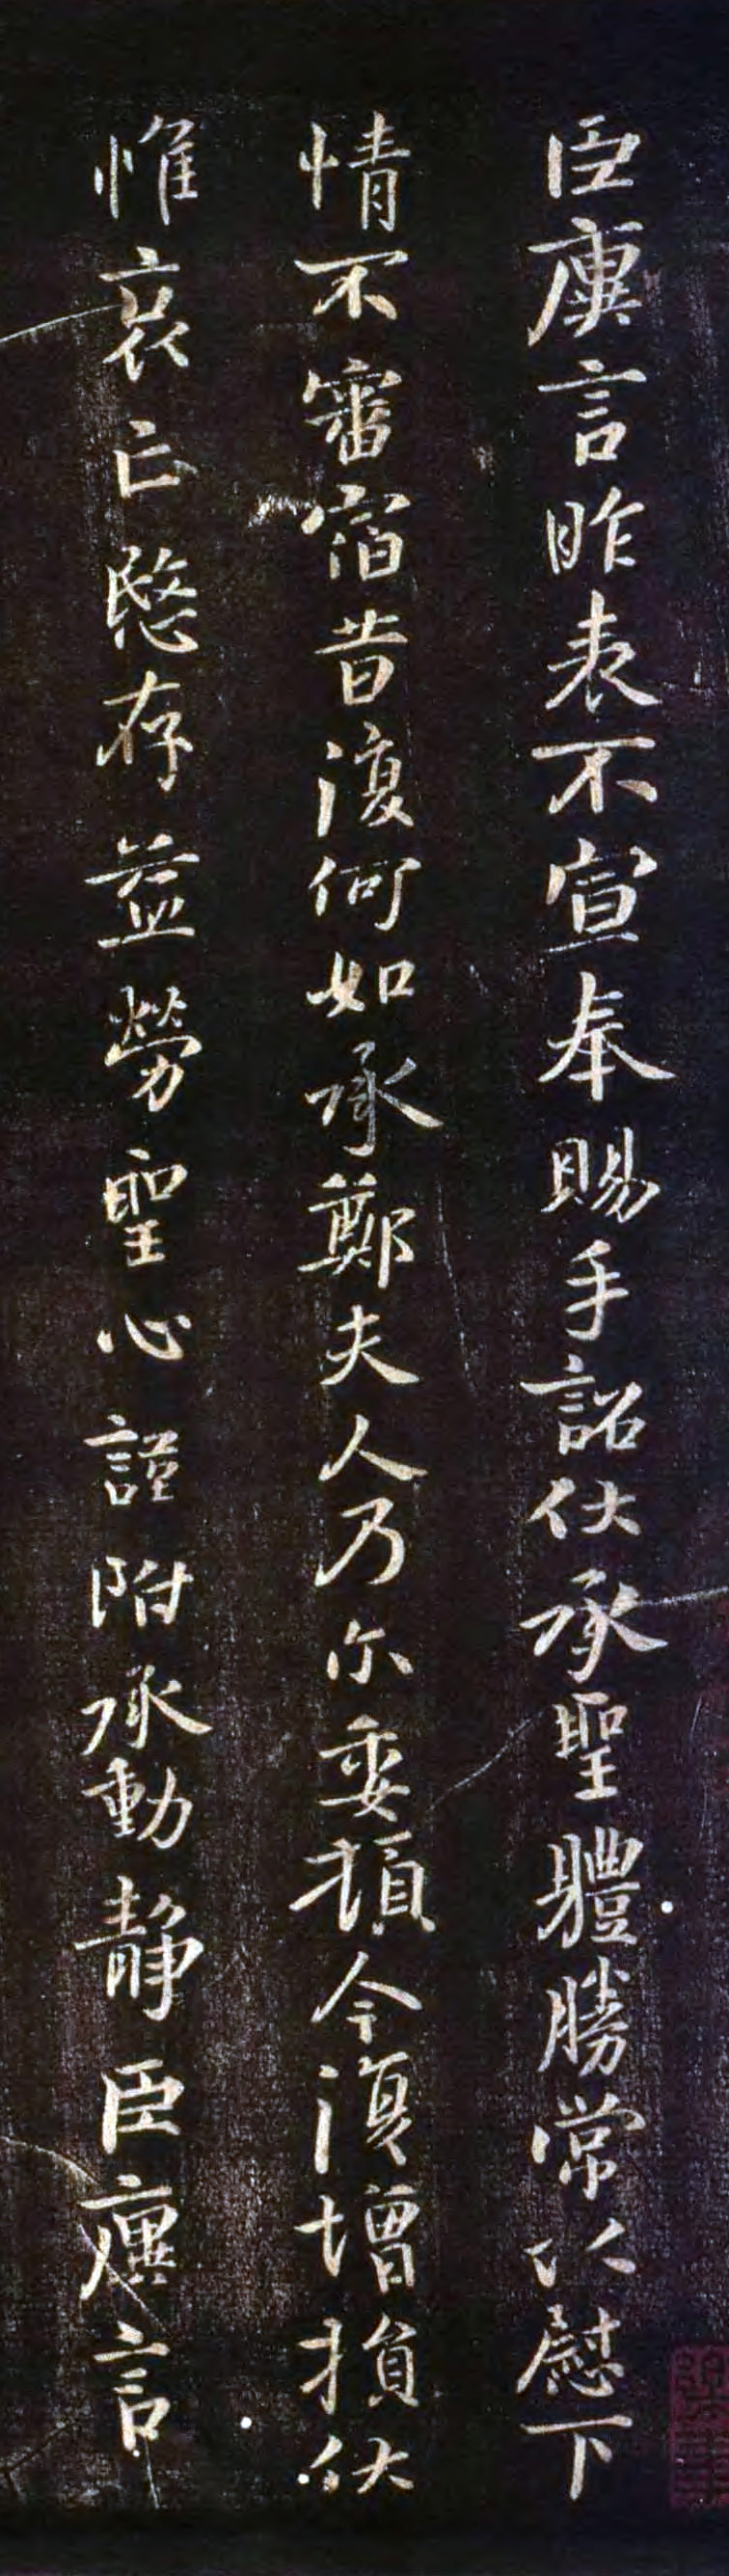 臣廙言昨表不宣奉賜手詔伏承聖體勝常以慰下
情不審宿昔復何如承鄭夫人乃尒委頓今復增損伏
惟哀亡愍存益勞聖心謹附承動靜臣廙言